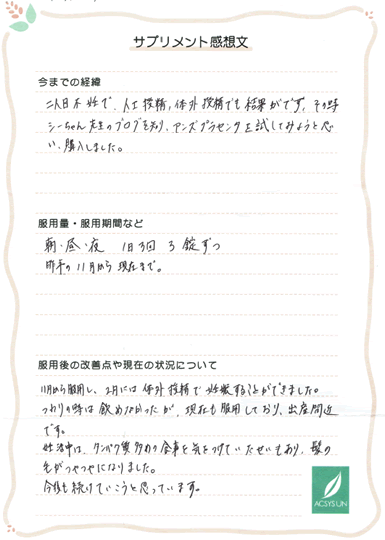 サプリメント感想文
今までの経緯
二人目不妊で、人工授精、体外授精でも結果がです、その時
シーちゃん先生のブログを知り、アンズプラセンタを試してみようと思
い、購入しました。
服用量・服用期間など
朝・昼・夜 1日3回 3錠ずつ
昨年の11月から現在まで。
服用後の改善点や現在の状況について
11月から服用し、2月には体外授精で妊娠することができました。
つわりの時は飲めなかったが、現在も服用しており、出産間近
です。
妊活中は、タンパク質多めの食事を気をつけていたせいもあり、髪の
毛がつやつやになりました。
今後も続けていこうと思っています。
ACSYSUN